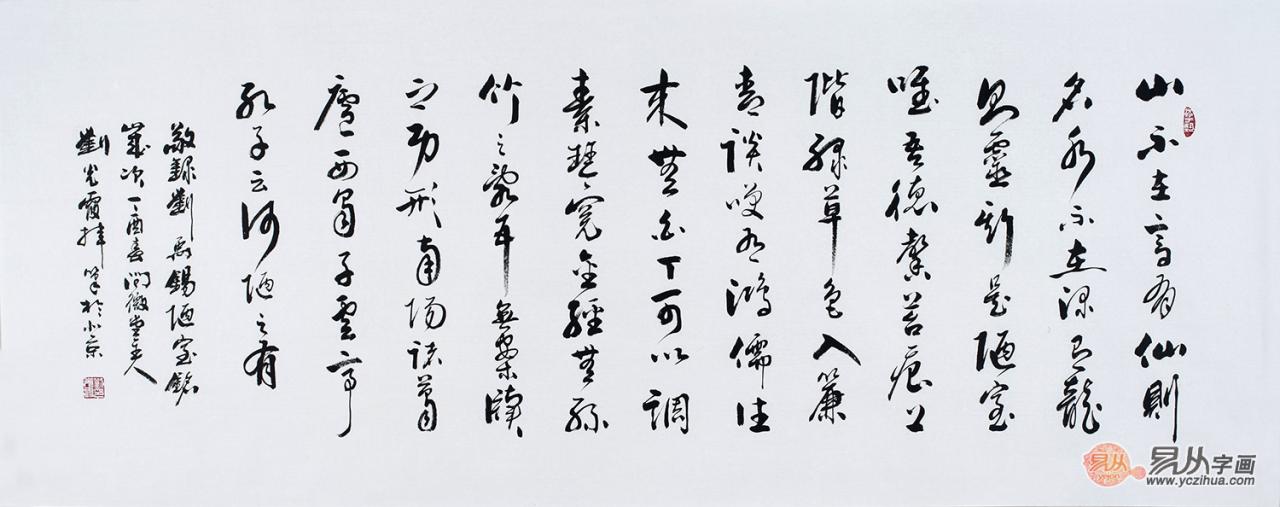 山不在高有仙則
名水不在深有龍
則靈斯是陋室
唯吾德馨苔痕上
階綠草色入簾
青談笑有鴻儒往
來無白丁可以調
素琴閱金經無絲
竹之亂耳無案牘
之勞形南陽諸葛
廬西蜀子雲亭
孔子云何陋之有
敬錄劉禹錫陋室銘
歲次丁酉春堂主人
劉光霞拜筆於北京
易从
易从字画
www.yczihua.com